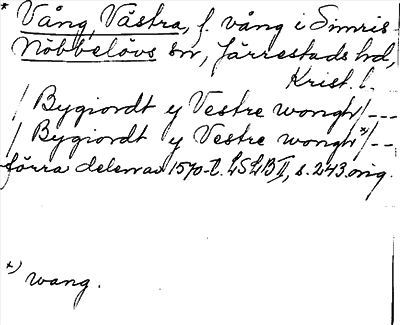 * Vång, Västra, f. vång i Simris-
Nöbbelövs sn, Järrestads hd,
Krist. l.
/ Bygiordt y Vestre wongh /---
/ Bygiordt y Vestre wongh *) /--
förra delen av 1570-t. LSLB II, s. 243. orig.
*) wang.